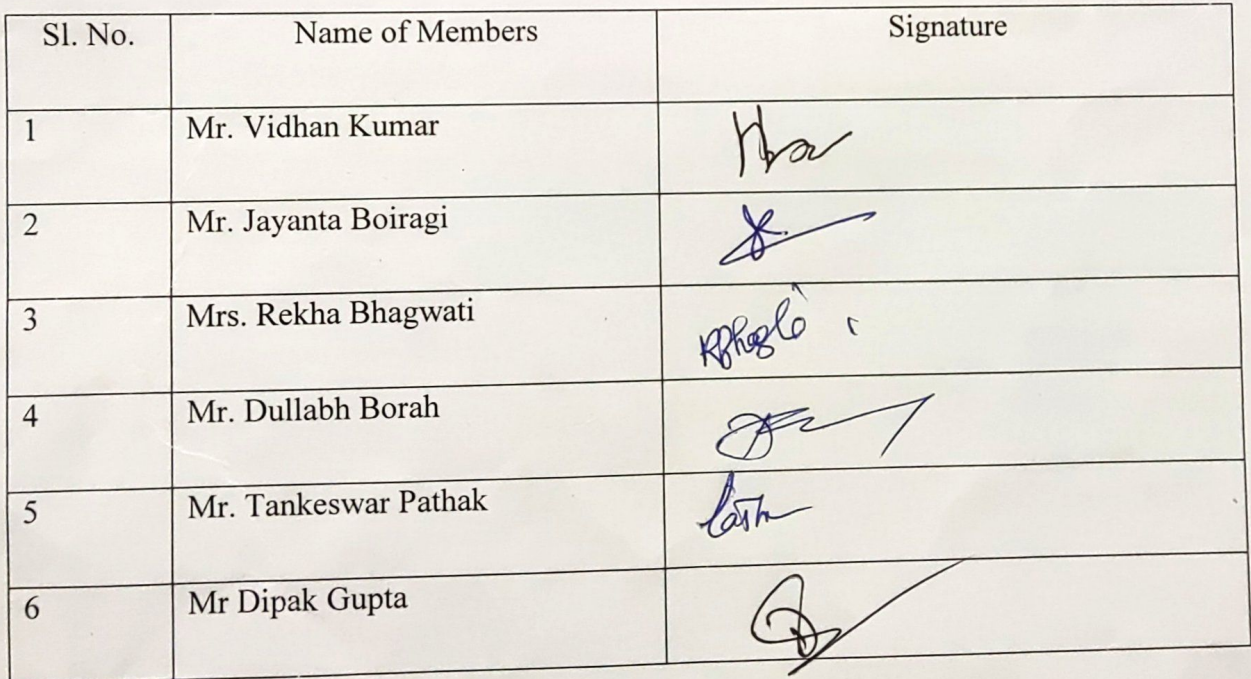 Sl. No. Name of Members Signature
1 Mr. Vidhan Kumar
2 Mr. Jayanta Boiragi
3 Mrs. Rekha Bhagwati
4 Mr. Dullabh Borah
5 Mr. Tankeswar Pathak
6 Mr Dipak Gupta